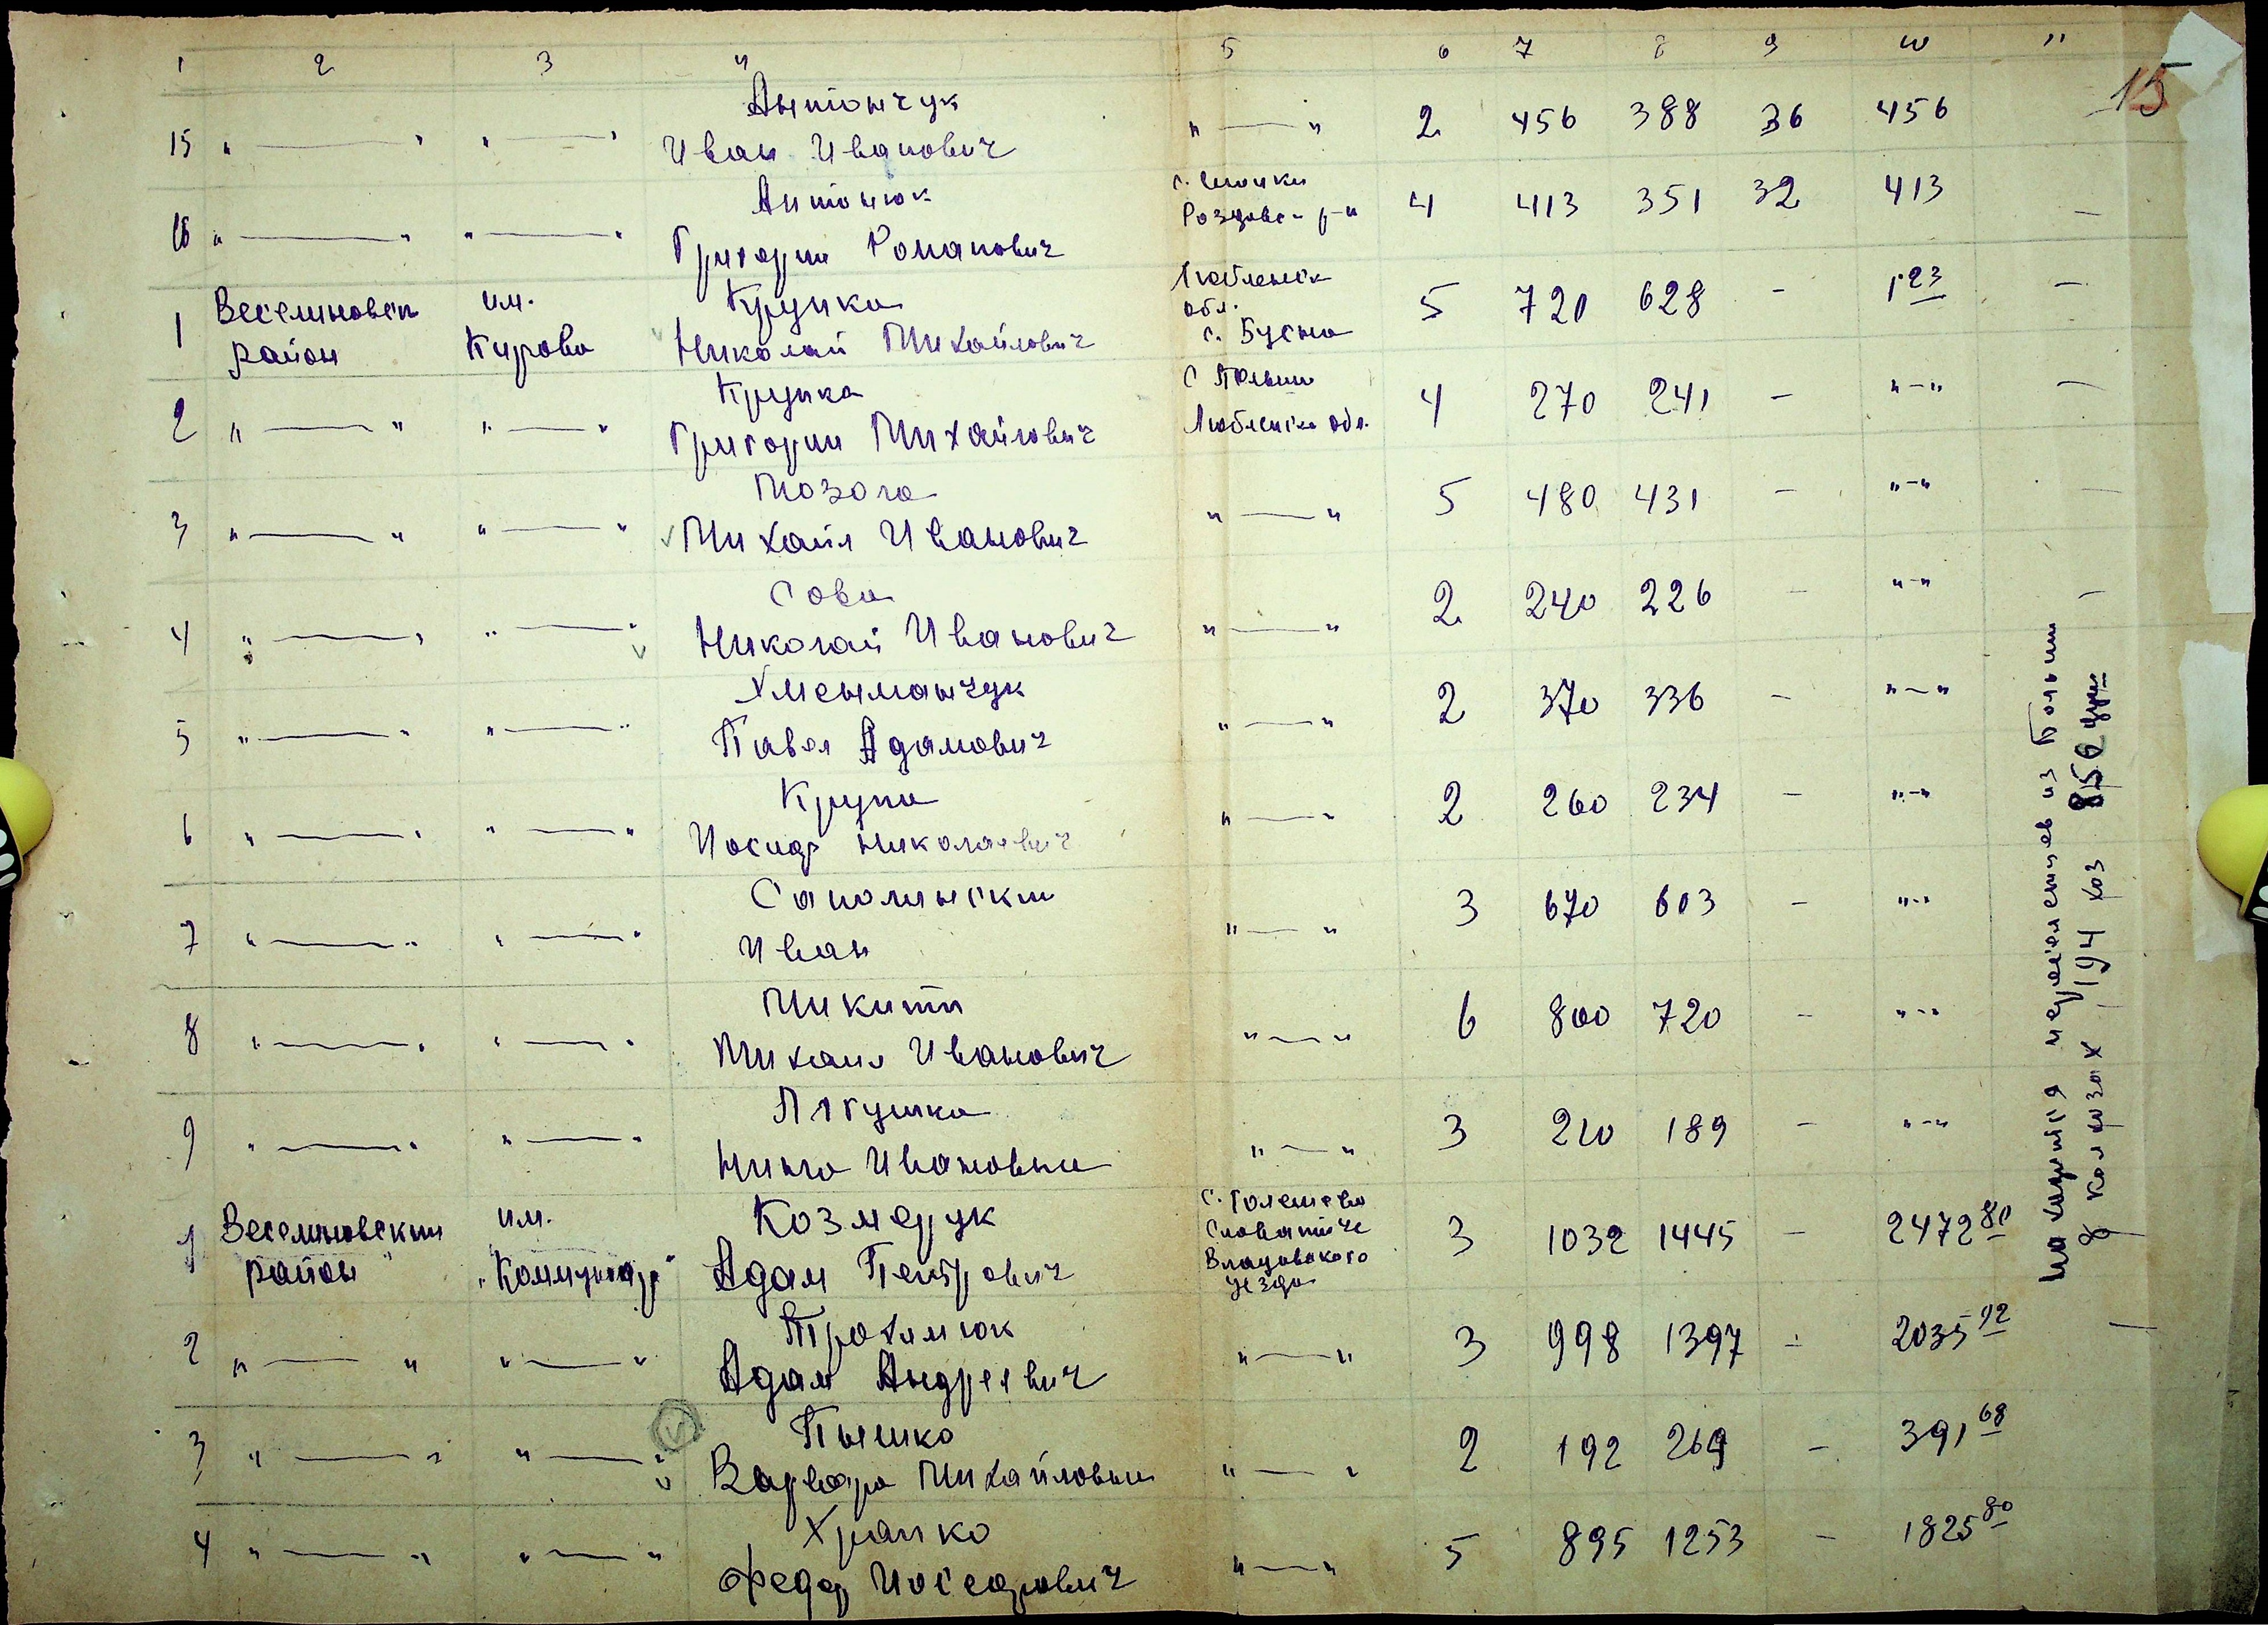 1 2 3 4 5 6 7 8 9 10 11
15
Антончук
15 " — " " — " Иван Иванович " — " 2 456 388 36 456
Антонюк
16 " — " " — " Григории Романович 4 413 351 32 413 —
1 Веселиновск им. Крупка Люблинск обл. 5 720 628 - 1 23 —
район Кирова Николай Михайлович с. Бусно
Крупка
2 " — " " — " Григории Михайлович Люблинск обл. 4 270 241 - "-" —
Мозола
3 " — " " — " Михаил Иванович " — " 5 480 431 - "-" —
Сова
4 " — " " — " Николай Иванович " — " 2 240 226 - "-" —
5 " — " " — " Павел Адамович " — " 2 370 336 - "-"
Крупа
6 " — " " — " Иосиф Николаевич " — " 2 260 234 - "-"
7 " — " " — " Иван " — " 3 670 603 - "-"
Микита
8 " — " " — " Михаил Иванович " — " 6 800 720 - "-"
Лягушка
9 " — " " — " Нина Ивановна " — " 3 210 189 - "-"
1 Веселиновский им. Козмерук 3 1032 1445 - 2472 80
район "Коммунар" Адам Петрович Владовского
уезда
Трохимюк
2 " — " " — " Адам Андреевич " — " 3 998 1397 - 2035 92 —
Пышко
3 " — " " — " Варвара Михайловна " — " 2 192 269 - 391 68
Храпко
4 " — " " — " Федор Иосефович " — " 5 895 1253 - 1825 80
находится переселенцев из Польши
в колхозах 194 хоз 856 душ